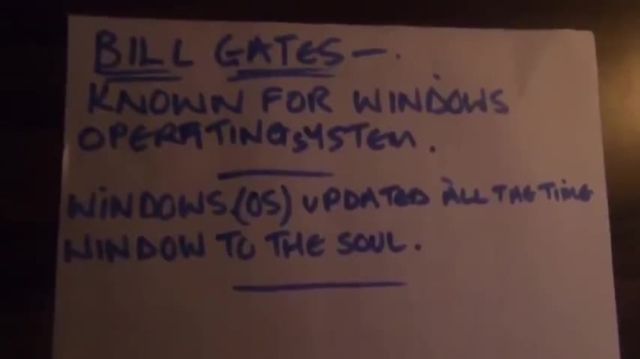 BILL GATES—.
KNOWN FOR WINDOWS
OPERATINGSYSTEM.
WINDOWS(OS) UPDATED ALL THE TIME
WINDOW TO THE SOUL.